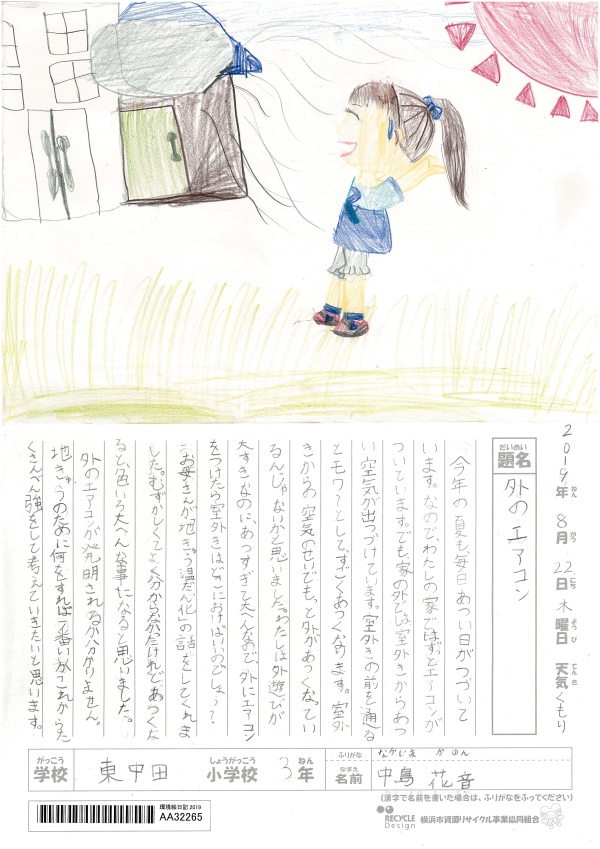 2019年 8月 22日 木曜日 天気 くもり
ねん がつ にち ようび てんき
だいめい
題名 外のエアコン
今年の夏も、毎日あつい日がつづいて
います。なので、わたしの家ではずっとエアコンが
ついています。でも、家の外では室外きからあつ
い空気が出つづけています。室外きの前を通る
とモワ〜として、すごくあつくなります。室外
きからの空気のせいでもっと外があつくなってい
るんじゃないかと思いました。わたしは外遊びが
大すきなのに、あつすぎて大へんなので、外にエアコン
をつけたら室外きはどこにおけばいいのでしょう?
お母さんが「地きゅう温だん化」の話をしてくれま
した。むずかしくてよく分からなかったけれど、あつくな
ると、色いろ大へんな事になると思いました。
外のエアコンが発明されるか分かりません。
地きゅうのために何をすれば一番いいか、これからた
くさんべん強をして考えていきたいと思います。
がっこう しょうがっこう ねん
学校 東中田 小学校 3年
ふりがな なかじま かのん
なまえ
名前 中島 花音
(漢字で名前を書いた場合は、ふりがなをふってください)
環境絵日記2019
AA32265
RECYCLE Design 横浜市資源リサイクル事業協同組合